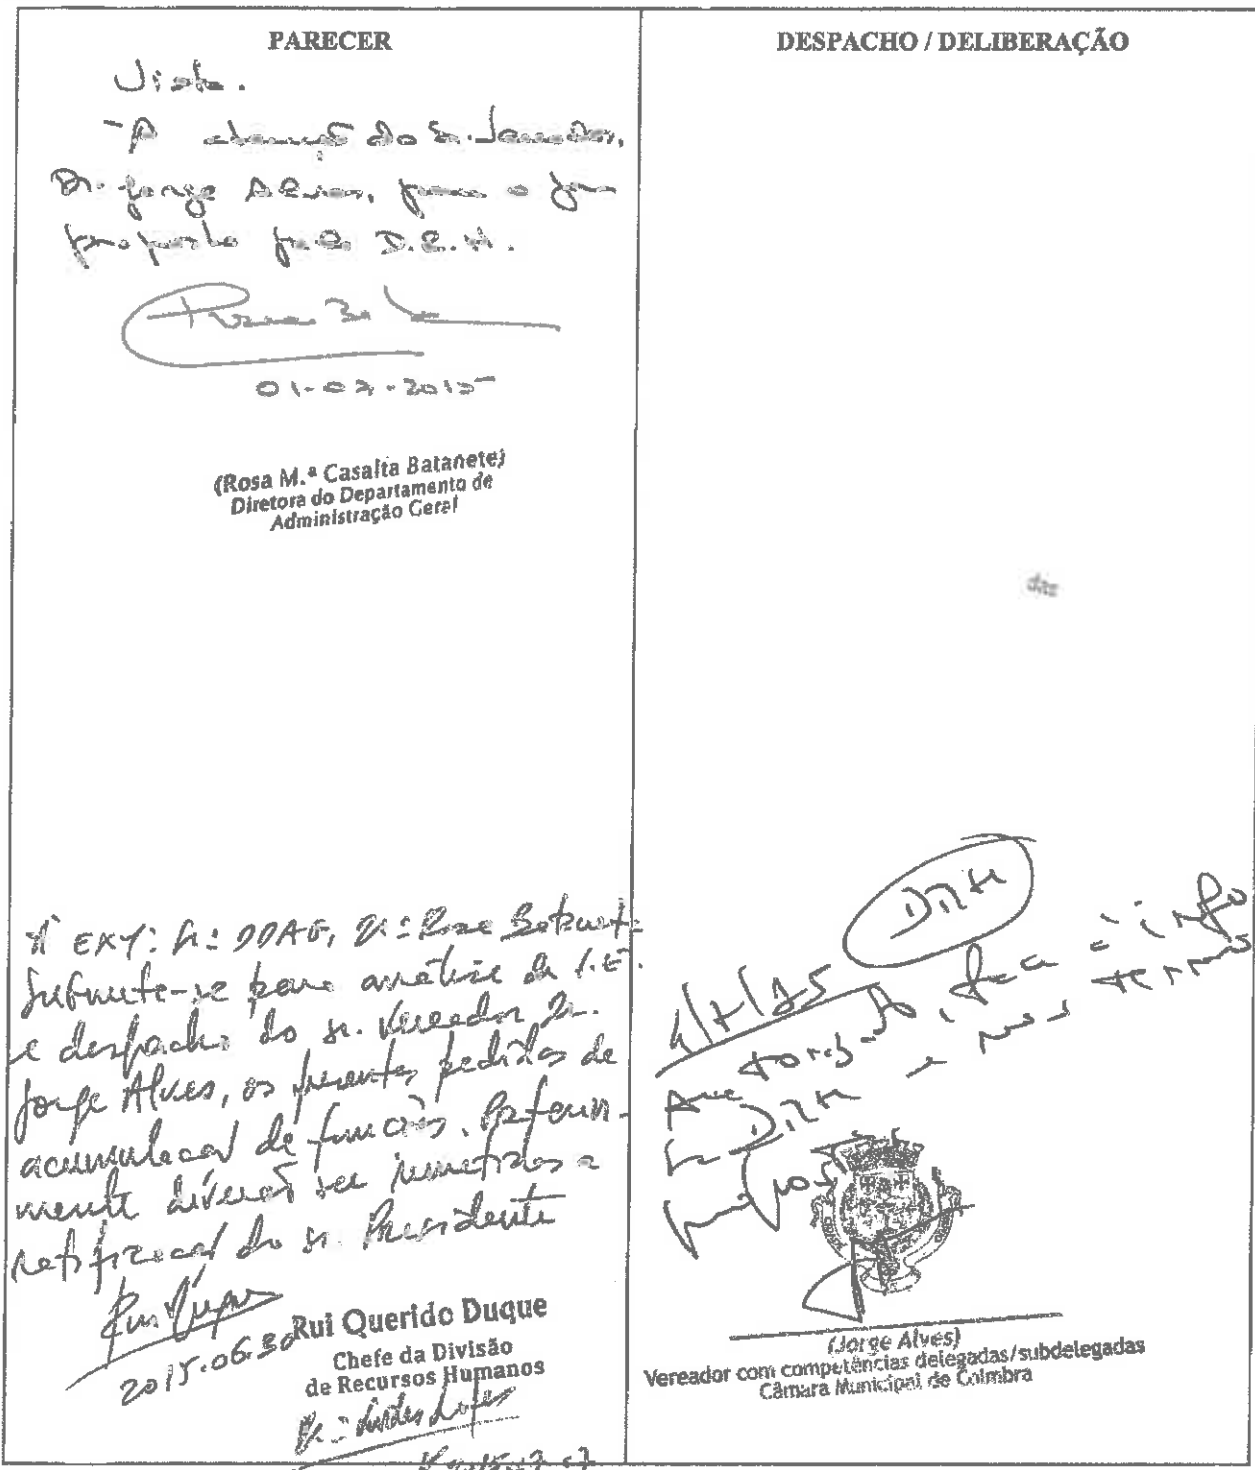 PARECER
Visto.
À atenção do Sr. Vereador,
Dr. Jorge Alves, para o fim
proposto pela D.R.H.
01-07-2015
(Rosa M.ª Casalta Batanete)
Diretora do Departamento de
Administração Geral
À EXMª Srª DDAG, Drª Rosa Batanete
Submete-se para análise da V.E.
e despacho do sr. Vereador Dr.
Jorge Alves, os presentes pedidos de
acumulação de funções.
mente deverão ser remetidos a
retificação do sr. Presidente
Rui Duque
2015.06.30
Rui Querido Duque
Chefe da Divisão
de Recursos Humanos
Drª Lurdes Lopes
DESPACHO / DELIBERAÇÃO
das
DRH
Autorizado, face à info
DRH e nos termos
propostos
(Jorge Alves)
Vereador com competências delegadas/subdelegadas
Câmara Municipal de Coimbra